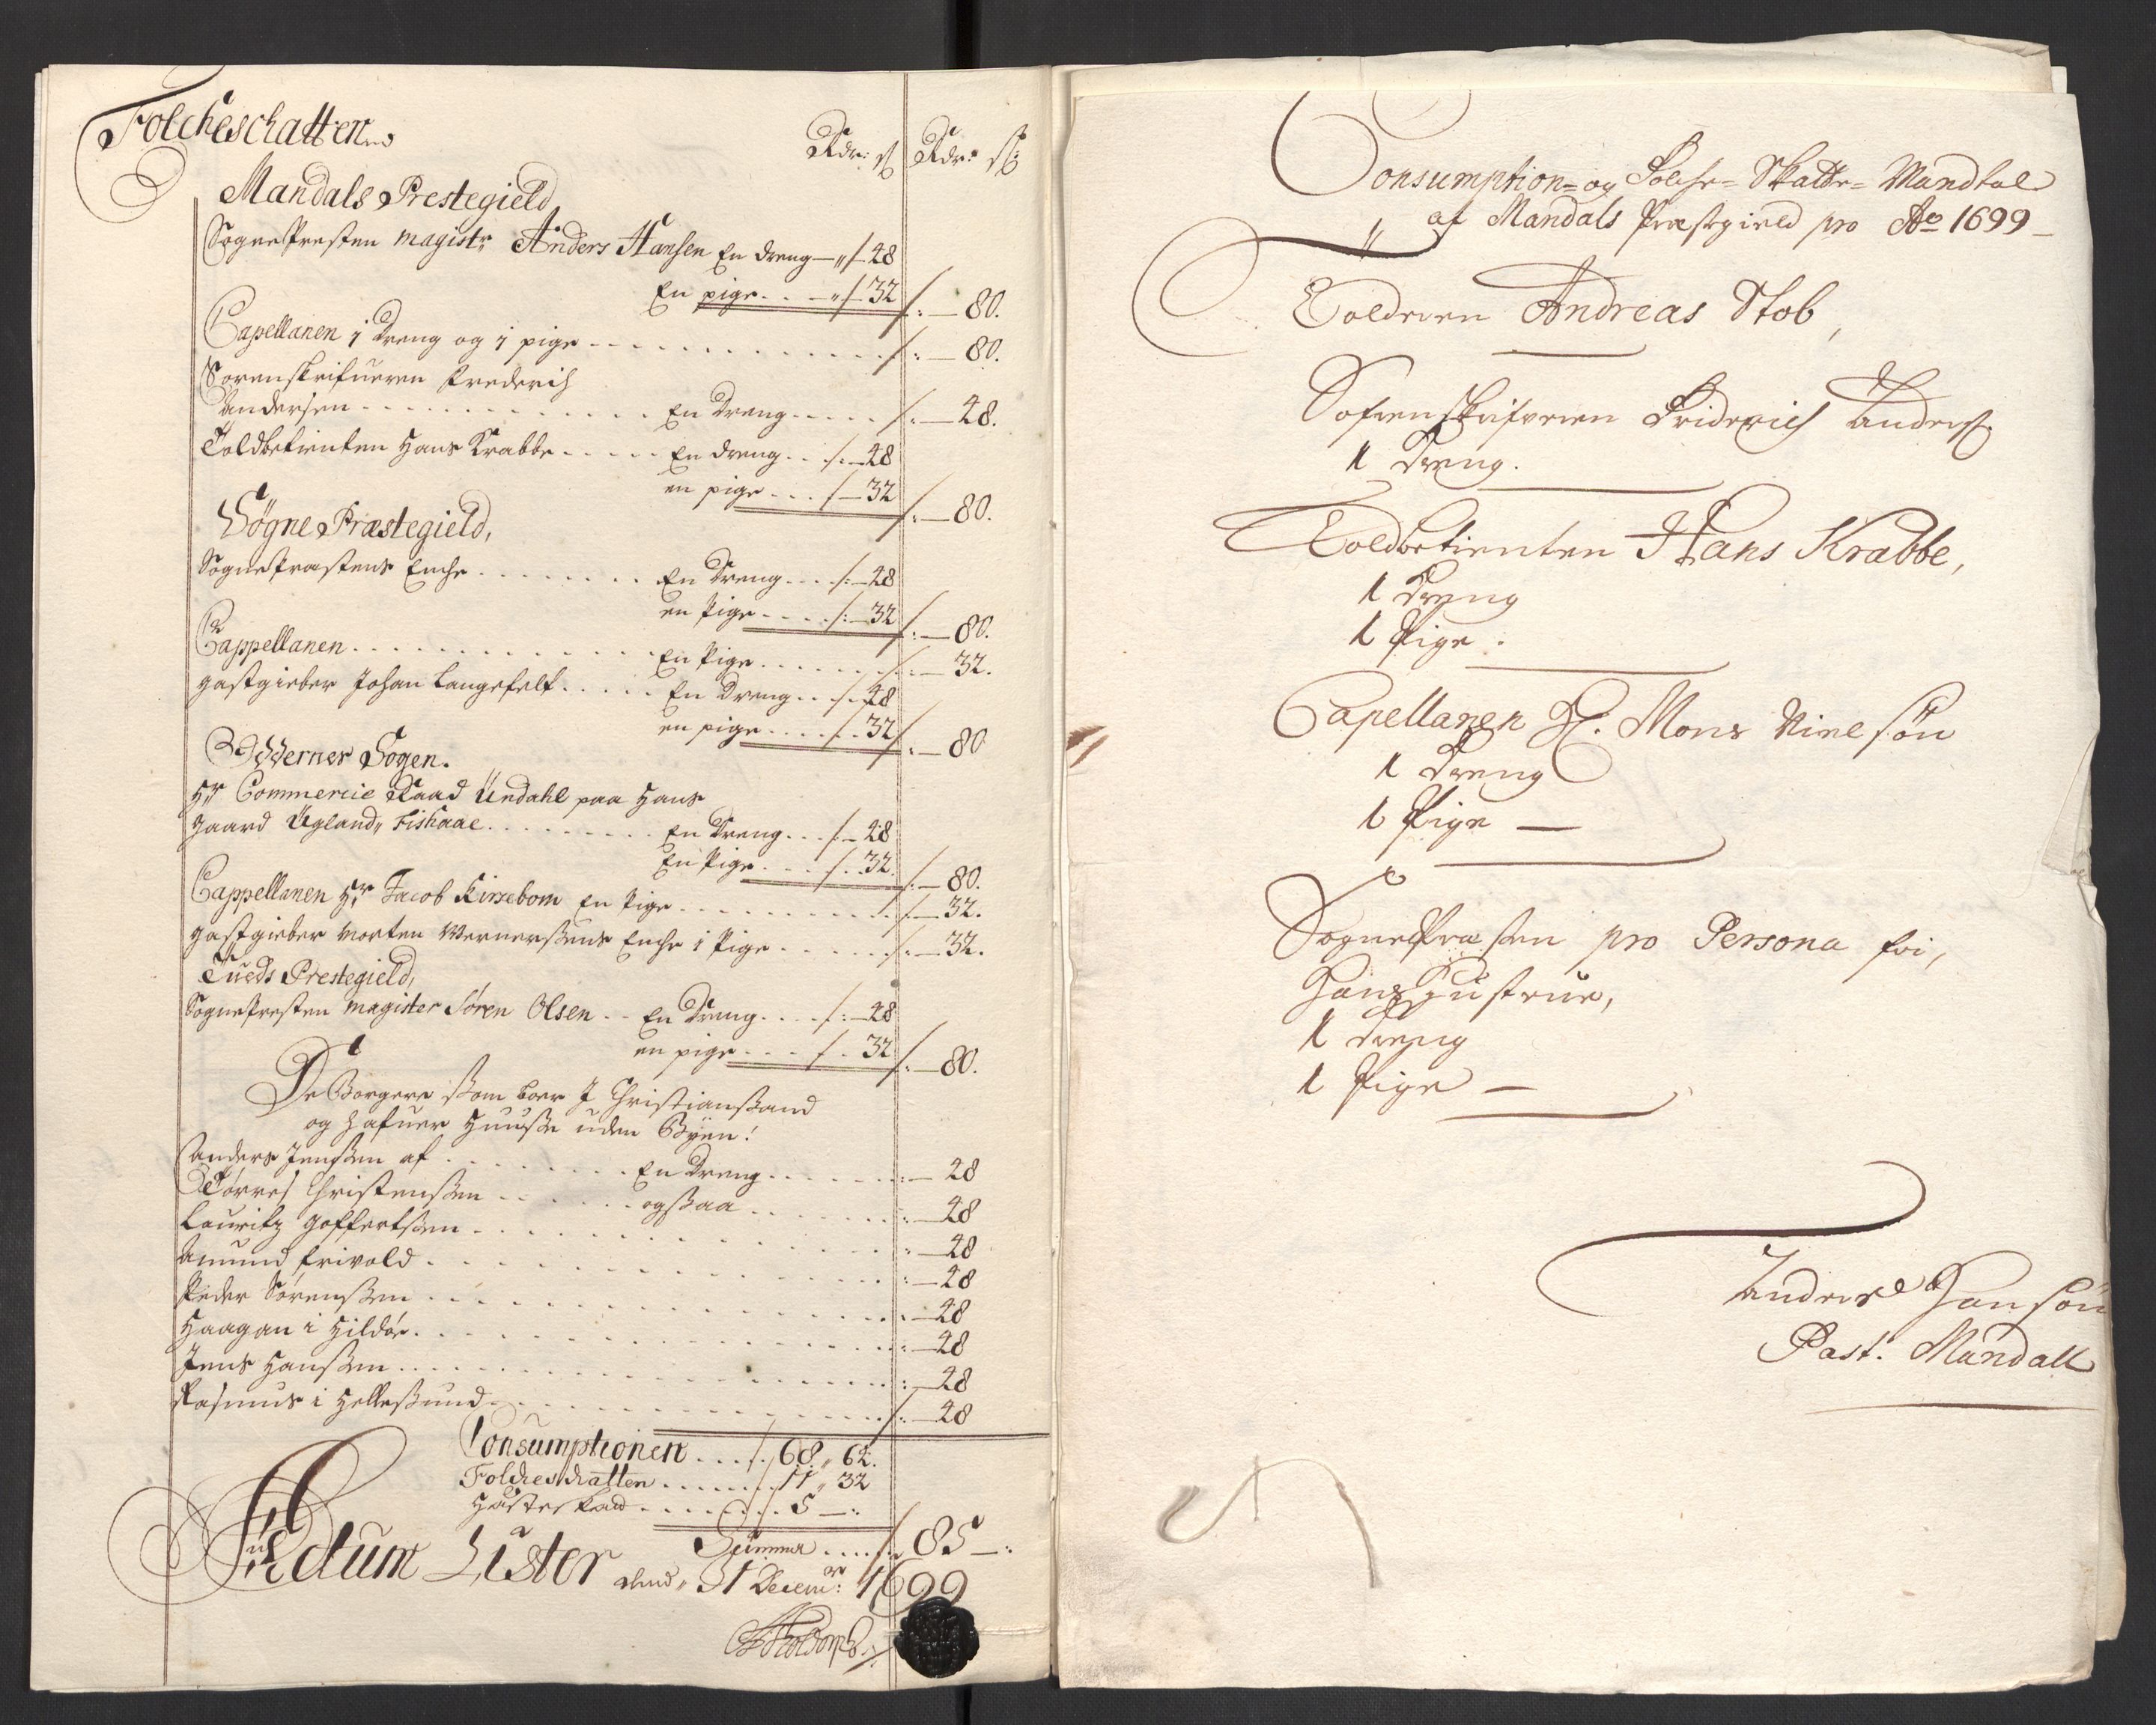 Folcheschatten
Rdr: ß Rdr: ß:
Mandals Prestegield
Sognepresten magistr Anders Hansen En dreng — " — 48
En pige . . — " — 32 — 80.
Capellanen 1 dreng og 1 pige — 80.
Sorenskrifueren Frederich
Andersen En dreng — 48.
Toldbetienten Hans Krabbe En dreng — 48
en pige — 32 — 80.
Søgne Præstegield,
Sogneprestens Enche En dreng — 48
en Pige — 32 — 80.
Cappellanen En Pige — 32.
gastgieber Johan Langefelt En dreng — 48
en pige — 32 — 80
Odderness Sogen.
Hr Commercie Raad Undahl paa Hans
gaard Ugland, Fiskaae En dreng — 48
En Pige — 32 — 80.
Cappellanen Hr Jacob Kirsebom En Pige — 32.
gastgieber Morten Wernerssens Enche 1 Pige — 32.
Tueds Prestegield,
Sognepresten magister Søren Olsen En dreng — 48
en pige — 32 — 80.
De Borgere som boer I Christianssand
og hafuer Huusse uden Byen!
Anders Jenssen af En dreng — 48
Torres Christenssen ogssaa — 48
Lauritz Goffertssen — 48
Amund Frivold — 48
Peder Sørenssen — 48
Haagan i Hildøe — 48
Jens Hanssen — 48
Rasmus i Hellessund — 48
Consumptionen . . . 68 " 62.
Folcheschatten . . . 11 " 32
Hæsteskatt . . . 5 —:
Summa . . . 85 —:
Actum Lister dend 31 Decemr: 1699
Consumption- og Folche-Skatte-Mandtal
af Mandals Præstegield pro Ao 1699
Tolderen Andreas Stob,
Sorenskrifveren Friderich Anders.
1 Dreng.
Toldbetienten Hans Krabbe,
1 Dreng
1 Pige.
Capellanen Hr. Mons Nielsøn
1 Dreng
1 Pige —
Sognepræsten pro Persona fri,
Hans Hustrue,
1 Dreng
1 Pige —
Anders Hansøn
Past. Mandall